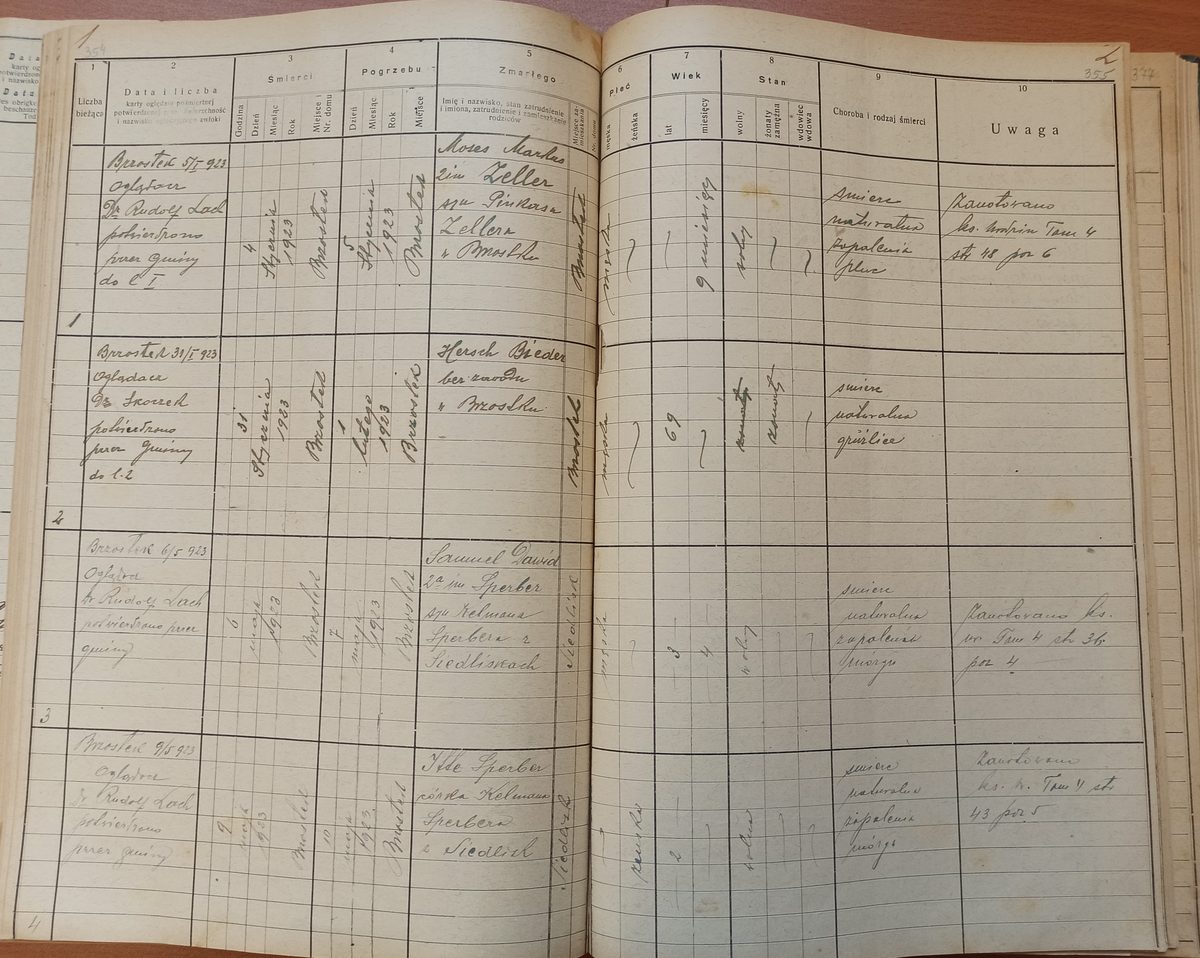 1
354
2
355
377
1
2
3
4
5
6
7
8
9
10
Liczba bieżąca
Data i liczba
karty oględzin pośmiertnej
Śmierci
Godzina
Dzień
Miesiąc
Rok
Miejsce i Nr. domu
Pogrzebu
Dzień
Miesiąc
Rok
Miejsce
Zmarłego
Imię i nazwisko, stan zatrudnienie
i imiona, zatrudnienie i zamieszkanie
rodziców
Płeć
męska
żeńska
Wiek
lat
miesięcy
Stan
wolny
żonaty zamężna
wdowiec wdowa
Choroba i rodzaj śmierci
Uwaga
1
Brzostek 5/I 923
Oglądacz
Dr Rudolf Lach
potwierdzono
przez Gminy
do L I
4
Stycznia
1923
Brzostek
5
Stycznia
1923
Brostek
Moses Markus
2im Zeller
syn Pinkasa
Zellera
w Brostku
Brostek
męska
9 miesięcy
wolny
smierc
naturalna
zapalenia
płuc
Zanotowano
ks. urodzin Tom 4
str 48 poz 6
2
Brzostek 31/I 923
Oglądacz
Dr Skorzek
potwierdzono
przez Gminy
do l. 2
31
Stycznia
1923
Brostek
1
lutego
1923
Brzostek
Hersch Bieder
bez zawodu
w Brzostku
Brostek
męska
69
żonaty
żonaty
smierc
naturalna
gruźlice
3
Brzostek 6/5 923
Oglądacz
Dr Rudolf Lach
potwierdzono przez
gminy
6
maja
1923
Brostek
7
maja
1923
Brostek
Samuel Dawid
2a im Sperber
syn Kelmana
Sperbera z
Siedliskach
Siedlisk
męska
3
4
wolny
smierc
naturalna
zapalenia
mózgu
Zanotowano ks.
ur. Tom 4 str 36
poz 4
4
Brzostek 9/5 923
Oglądacz
Dr Rudolf Lach
potwierdzono
przez gminy
9
maja
923
Brostek
10
maja
1923
Brostek
Itte Sperber
córka Kelmana
Sperbera
z Siedlisk
Siedlisk
żenska
2
wolna
smierc
naturalna
zapalenia
mózgu
Zanotowano
ks. ur. Tom 4 str
43 poz 5